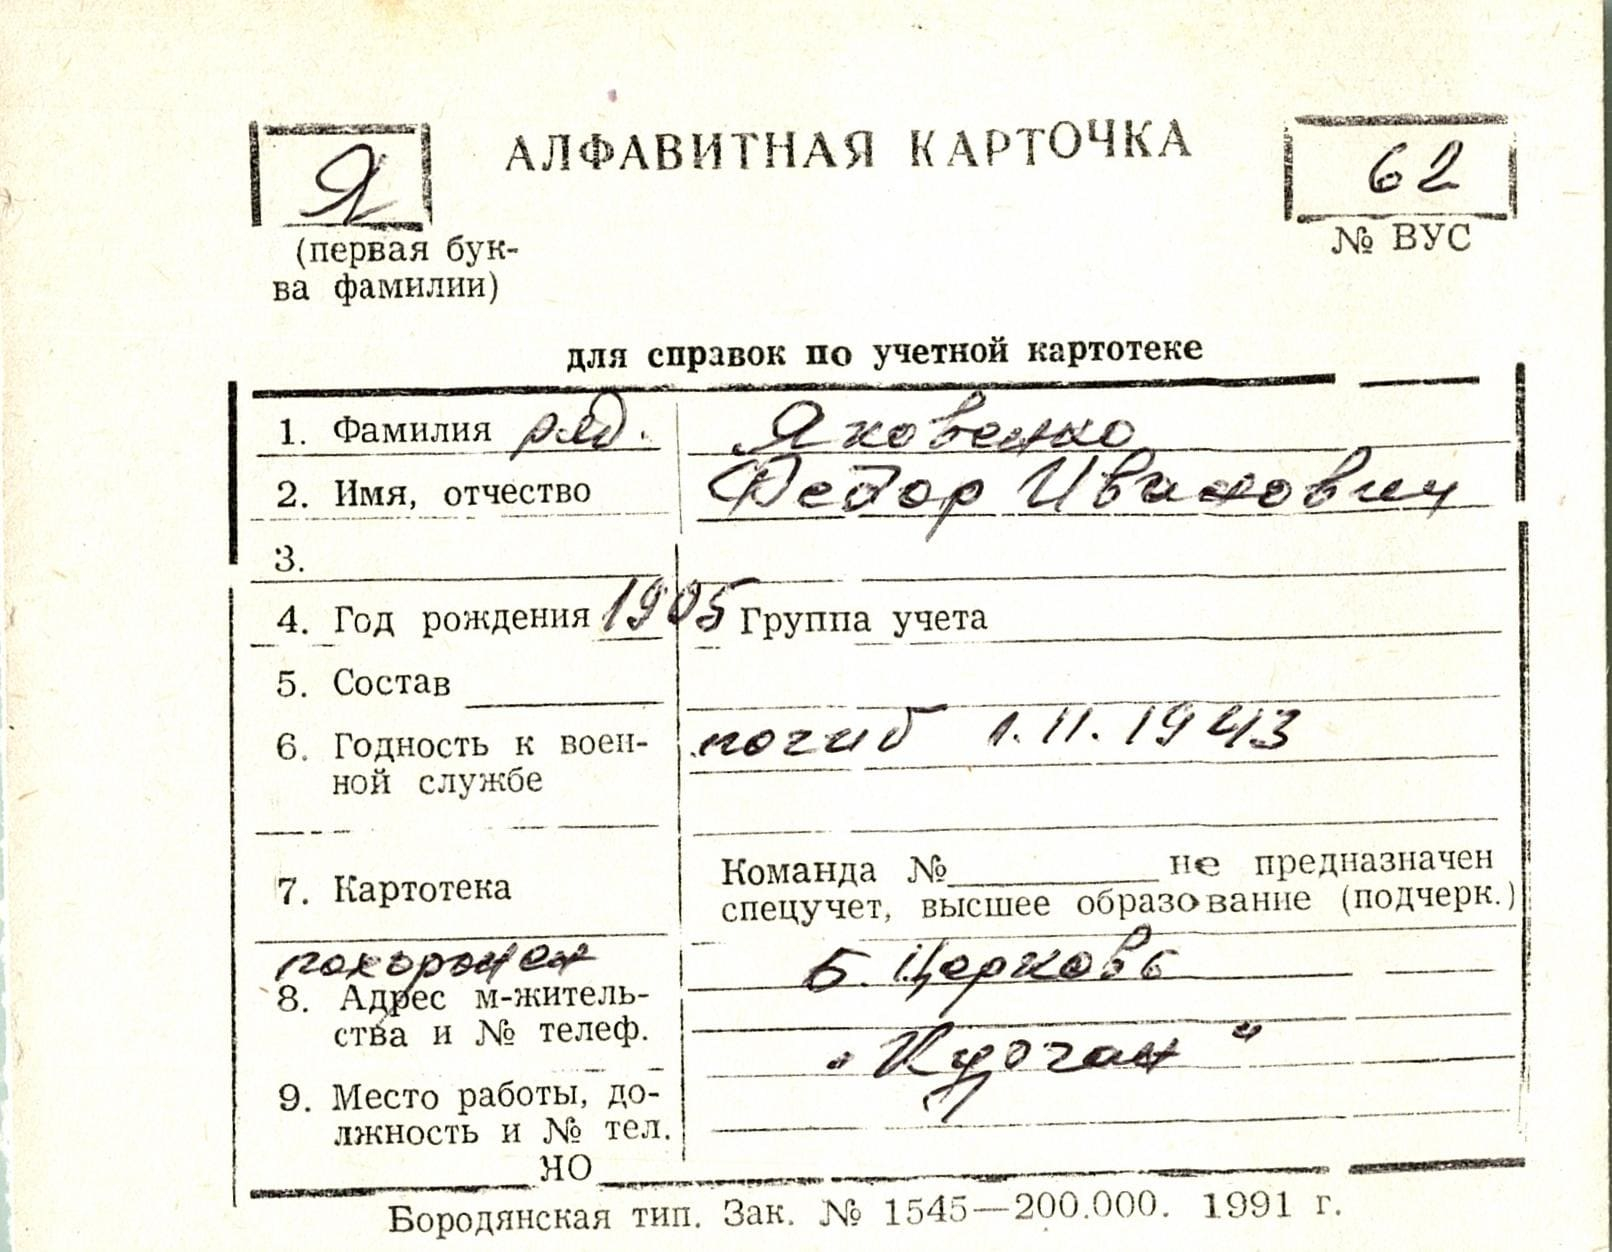 Я
АЛФАВИТНАЯ КАРТОЧКА
62
(первая бук-
ва фамилии)
№ ВУС
для справок по учетной картотеке
1. Фамилия ряд. Яковенко
2. Имя, отчество Федор Иванович
3.
4. Год рождения 1905 Группа учета
5. Состав
6. Годность к воен-
ной службе
погиб 1.11.1943
7. Картотека
Команда № не предназначен
спецучет, высшее образование (подчерк.)
похоронен Б. Церковь
8. Адрес м-житель-
ства и № телеф.
"Курган"
9. Место работы, до-
лжность и № тел.
ЯО
Бородянская тип. Зак. № 1545—200.000. 1991 г.